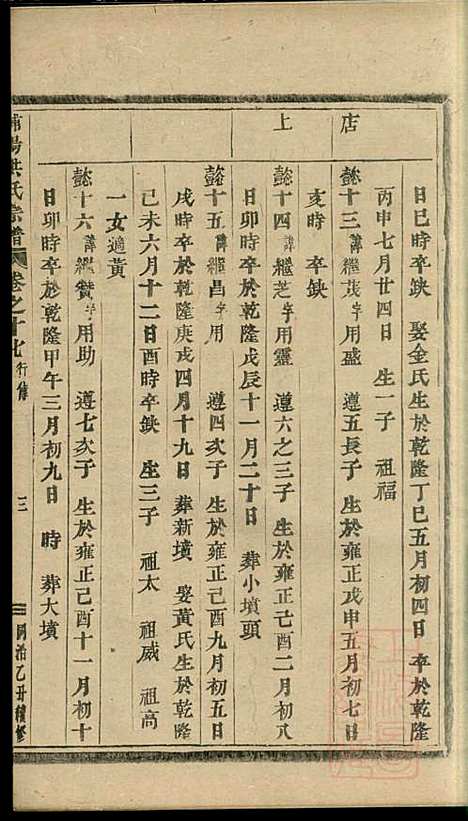 店
上
日巳時卒缺　娶金氏生於乾隆丁巳五月初四日　卒於乾隆
丙申七月廿四日　生一子　祖福
懿十三諱繼茂字用盛　遵五長子　生於雍正戊申五月初七日
亥時　卒缺
懿十四諱繼芝字用靈　遵六之三子　生於雍正己酉二月初八
日卯時卒於乾隆戊辰十一月二十日　葬小墳頭
懿十五諱繼昌字用　遵四次子　生於雍正己酉九月初五日
戌時卒於乾隆庚戌四月十九日　葬新墳　娶黃氏生於乾隆
己未六月十二日酉時卒缺　生三子　祖太　祖威　祖高
一女適黃
懿十六諱繼贊字用助　遵七次子　生於雍正己酉十一月初十
日卯時卒於乾隆甲午三月初九日　時　葬大墳
浦陽洪氏宗譜　卷之十七　行傳　三　同治乙丑續修